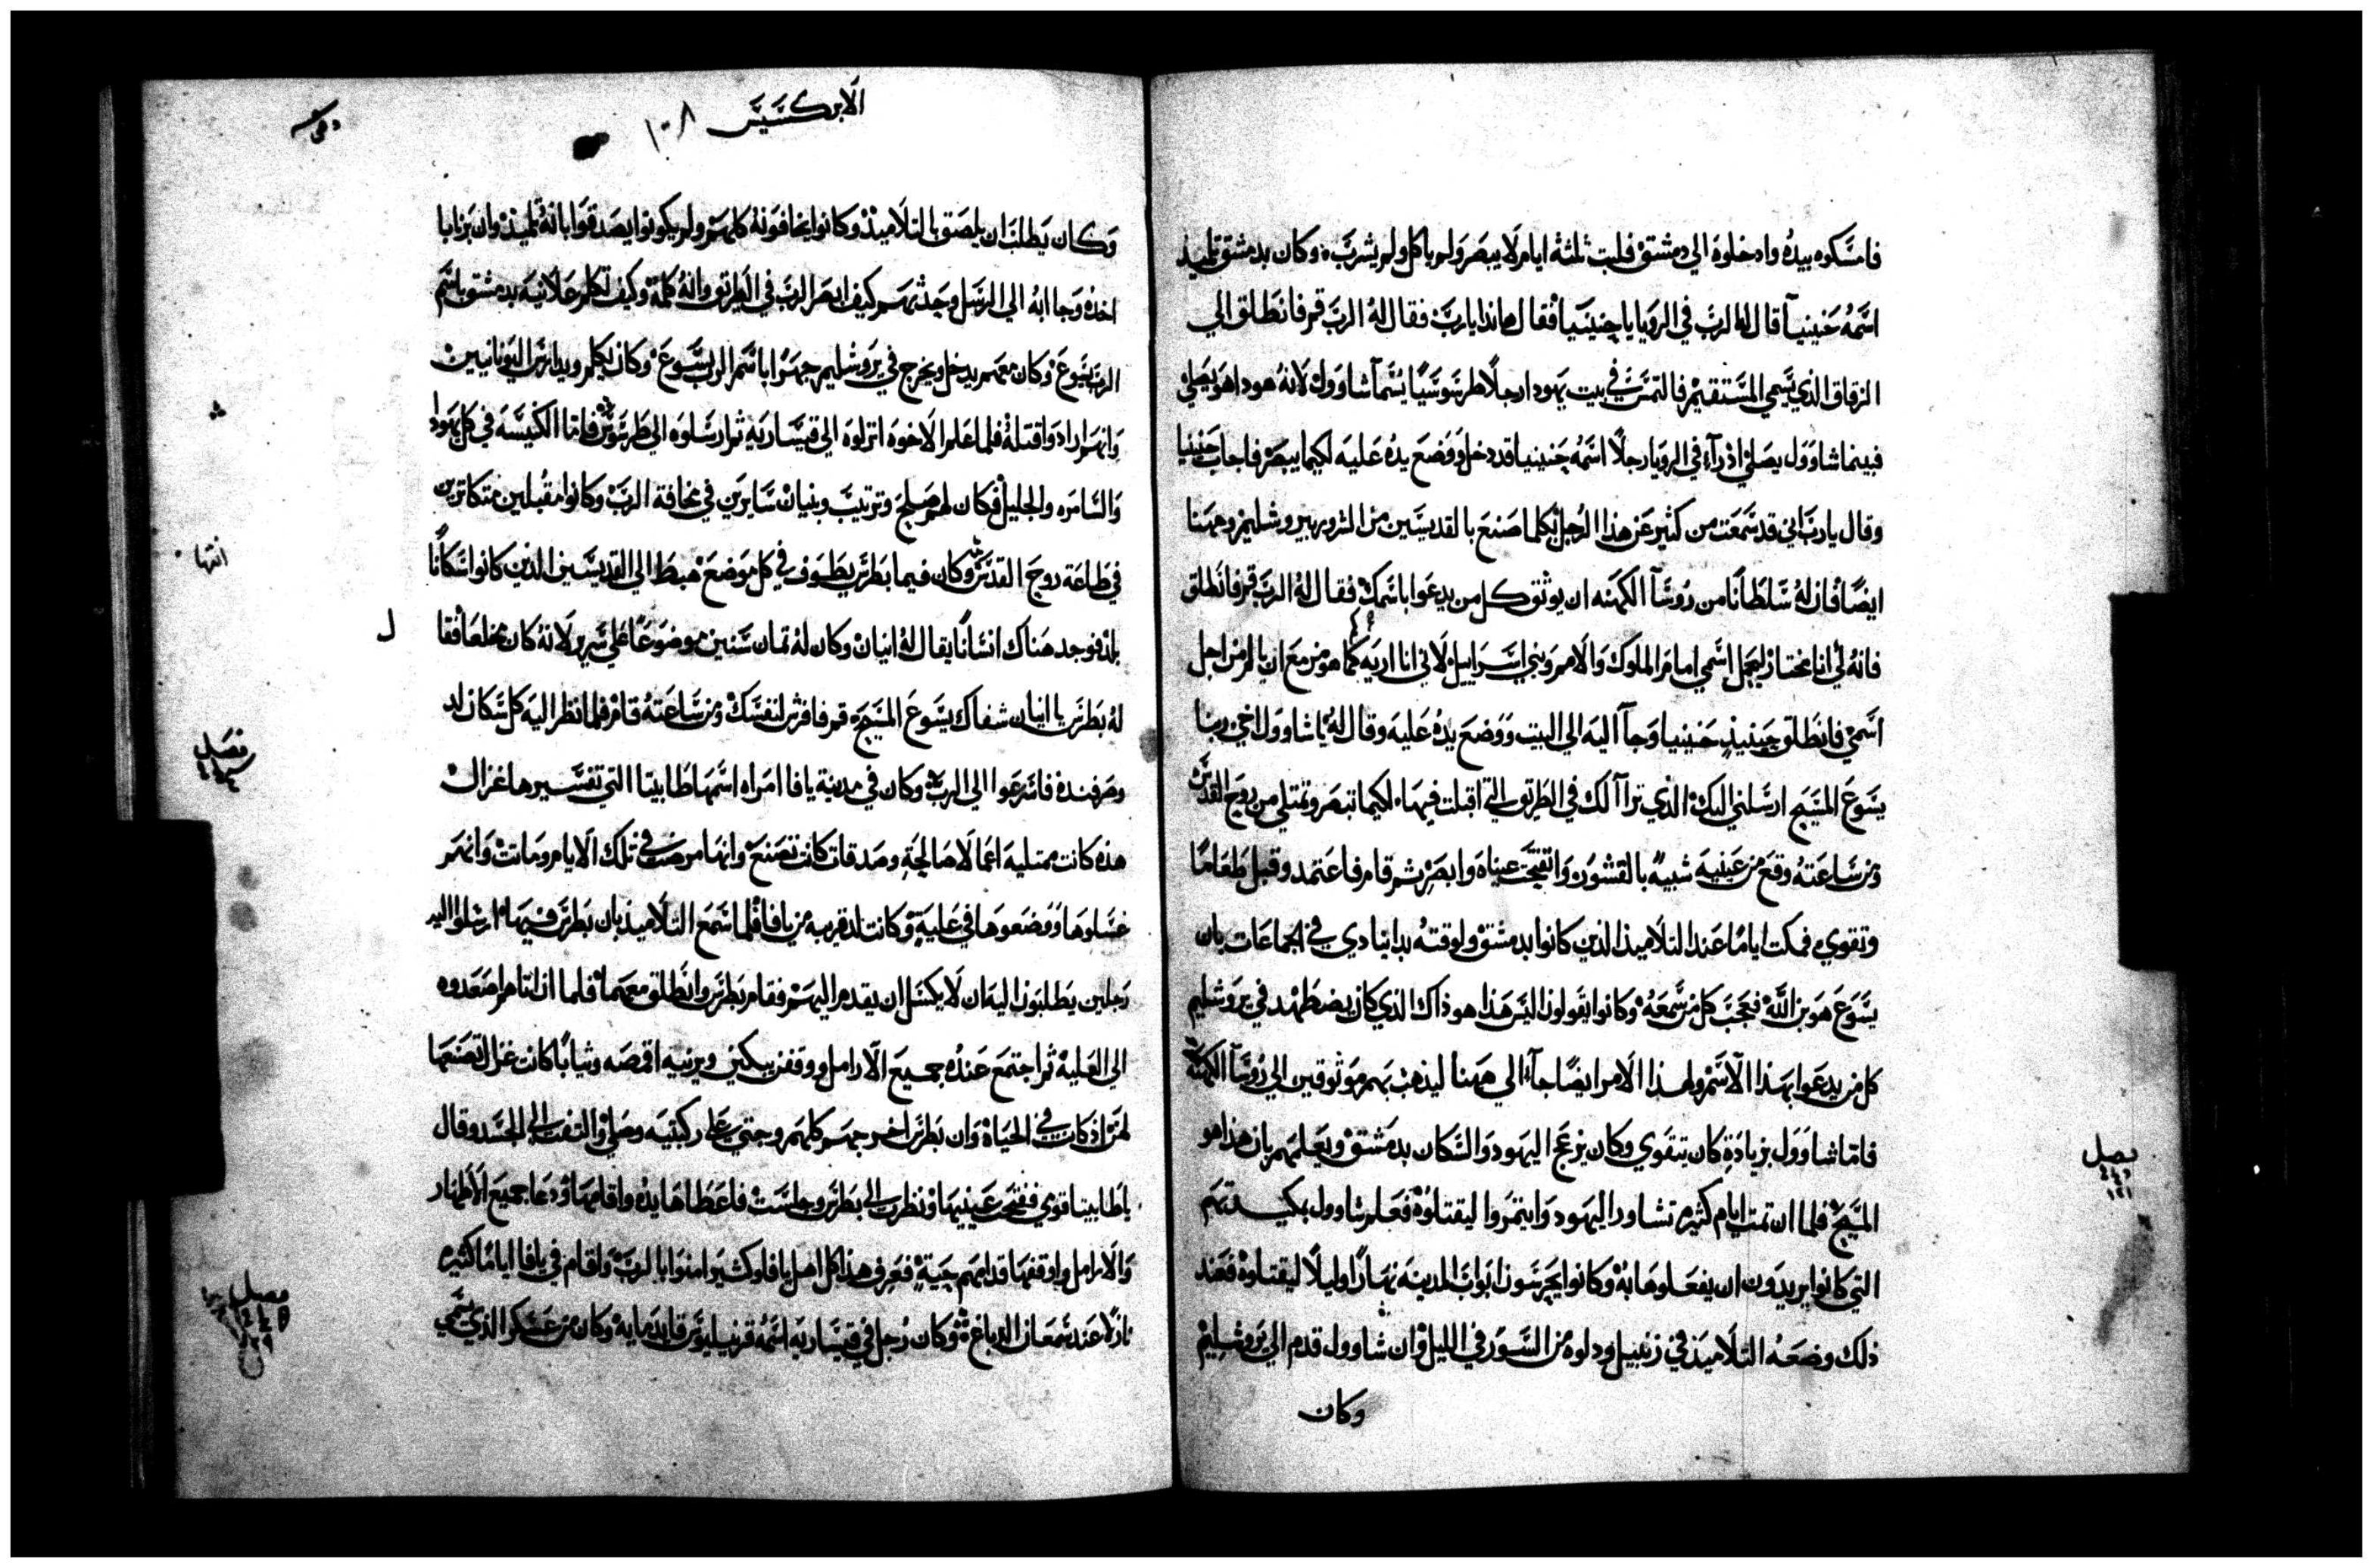 فامسكوه بيده وادخلوه الي دمشق فلبث ثلثة ايام لا يبصر ولم ياكل ولم يشرب وكان بدمشق تلميذ
اسمه حنينيا قال له الرب في الرويا يا حنينيا فقال هانذا يا رب فقال له الرب قم فانطلق الي
الزقاق الذي يسمي المستقيم فالتمس في بيت يهودا رجلًا طرسوسيًا يسما شاوول لانه هوذا هو يصلي
فبينما شاوول يصلي اذ رآء في الرويا رجلًا اسمه حنينيا قد دخل ووضع يده عليه لكيما يبصر فاجاب حنينيا
وقال يا رب اني قد سمعت من كثير عن هذا الرجل بكلما صنع بالقديسين من الشر بيروشليم وههنا
ايضًا فان له سلطانًا من روسآ الكهنه ان يوثق كل من يدعوا باسمك فقال له الرب قم فانطلق
فانه لي انا مختار ليحمل اسمي امام الملوك والامم وبني اسراييل لاني انا اريه كما هو مزمع ان يالم من اجل
اسمي فانطلق حينيذٍ حنينيا وجآ اليه الي البيت ووضع يده عليه وقال له يا شاوول اخي ربنا
يسوع المسيح ارسلني اليك الذي ترآآ لك في الطريق التي اقبلت فيها لكيما تبصر وتمتلي من روح القدس
ومن ساعته وقع من عينيه شبيه بالقشور وانفتحت عيناه وابصر ثم قام فاعتمد وقبل طعامًا
وتقوي فمكث ايامًا عند التلاميذ الذين كانوا بدمشق ولوقته بدا ينادي في الجماعات بان
يسوع هو بن الله فعجب كل من سمعه وكانوا يقولون اليس هذا هو ذاك الذي كان يضطهد في يروشليم
كل من يدعوا بهذا الاسم ولهذا الامر ايضًا جآ الي ههنا ليذهب بهم موثوقين الي روسآ الكهنة
فاما شاوول بزيادة كان يتقوي وكان يزعج اليهود والسكان بدمشق ويعلمهم بان هذا هو
المسيح فلما ان تمت ايام كثيره تشاور اليهود وايتمروا ليقتلوه فعلم شاوول بمكيدتهم
التي كانوا يريدون ان يفعلوها به وكانوا يحرسون ابواب المدينه نهارًا وليلًا ليقتلوه فعند
ذلك وضعه التلاميذ في زنبيل ودلوه من السور في الليل وان شاوول قدم الي يروشليم
وكان
فصل
الابركسيس ١٠٨
وكان يطلب ان يلصق بالتلاميذ وكانوا يخافونه كلهم ولم يكونوا يصدقوا بانه تلميذ وان برنابا
اخذه وجا ابه الي الرسل وحدثهم كيف ابصر الرب في الطريق وانه كلمه وكيف تكلم علانيه بدمشق باسم
الرب يسوع وكان معهم يدخل ويخرج في يروشليم جهرًا باسم الرب يسوع وكان يكلم ويدارس اليونانيين
وانهم ارادوا قتله فلما علم الاخوه انزلوه الي قيساريه ثم ارسلوه الي طرسوس فاما الكنيسه في كل يهودا
والسامره والجليل فكان لهم صلح وترتيب وبنيان سايرين في مخافة الرب وكانوا مقبلين متكاثرين
في طاعة روح القدس وكان فيما بطرس يطوف في كل موضع هبط الي القديسين الذين كانوا سكانًا
بلد فوجد هناك انسانًا يقال له انيان وكان له ثمان سنين موضوعًا علي سرير لانه كان مخلعا فقا
له بطرس يا انيان شفاك يسوع المسيح قم فافرش لنفسك ومن ساعته قام فلما نظر اليه كل سكان لد
وصرفنده فاسرعوا الي الرب وكان في مدينة يافا امراه اسمها طابيتا التي تفسيرها غزال
هذه كانت ممتليه اعمالا صالحةٍ وصدقات كانت تصنع وانها مرضت في تلك الايام وماتت وانهم
غسلوها ووضعوها في علية وكانت لد قريبه من يافا فلما سمع التلاميذ بان بطرس فيها ارسلوا اليه
رجلين يطلبون اليه ان لا يكسل ان يقدم اليهم فقام بطرس وانطلق معهما فلما ان اتاهم اصعدوه
الي العلية ثم اجتمع عنده جميع الارامل ووقفن يبكين ويرنيه اقمصه وثيابًا كانت غزال تصنعها
لهن اذ كانت في الحياة وان بطرس اخرجهم كلهم وجثي علي ركبتيه وصلي والتفت الي الجسد وقال
يا طابيتا قومي ففتحت عينيها ونظرت الي بطرس وجلست فاعطاها يده واقامها ودعا جميع الاطهار
والارامل واوقفها قدامهم حيةٍ فعرف هذا كل اهل يافا وكثير امنوا بالرب واقام في يافا ايامًا كثيره
نازلا عند سمعان الدباغ وكان رجل في قيساريه اسمه قرنيليوس قايد مايه وكان من عسكر الذي يسمي
انتها
ل
فصل
فصل